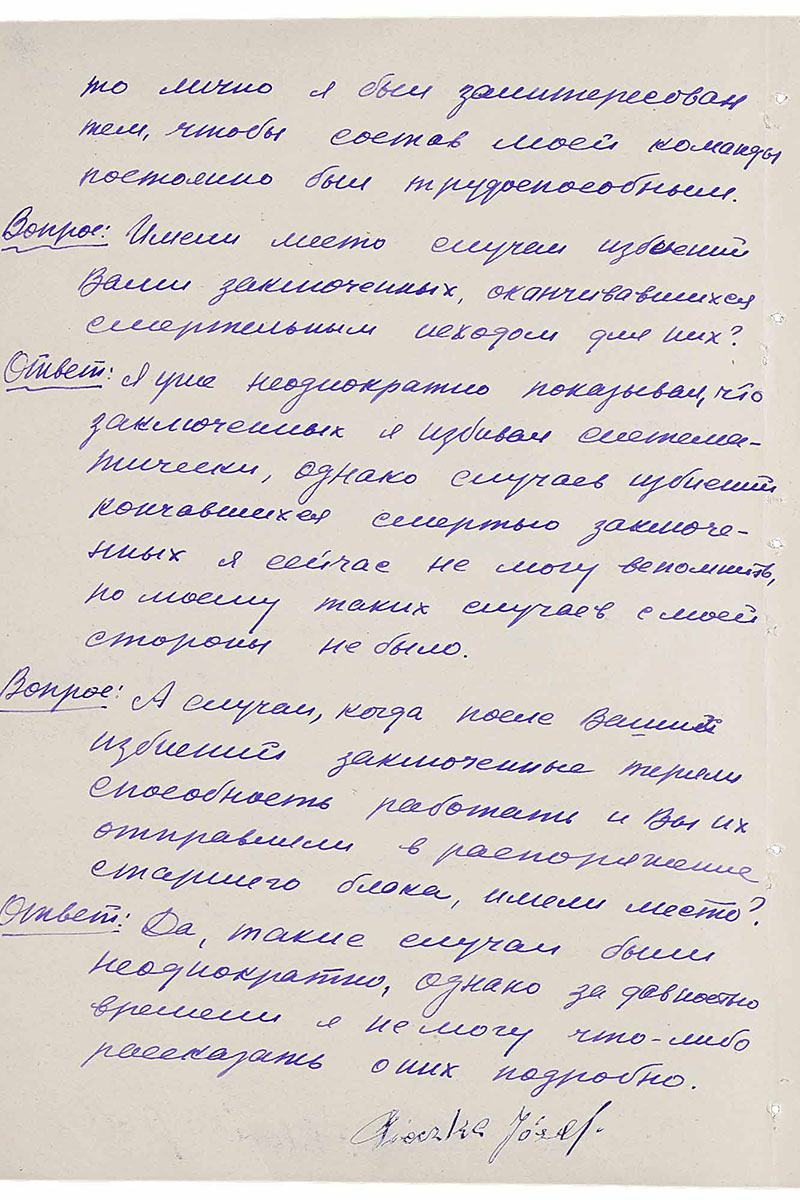 то лично я был заинтересован
тем, чтобы состав моей команды
постоянно был трудоспособным.
Вопрос: Имели место случаи избиений
Вами заключенных, оканчивавшихся
смертельным исходом для них?
Ответ: Я уже неоднократно показывал, что
заключенных я избивал система-
тически, однако случаев избиений
кончавшихся смертью заключе-
нных я сейчас не могу вспомнить,
по моему таких случаев с моей
стороны не было.
Вопрос: А случаи, когда после Ваших
избиений заключенные теряли
способность работать и Вы их
отправляли в распоряжение
старшего блока, имели место?
Ответ: Да, такие случаи были
неоднократно, однако за давностью
времени я не могу что-либо
рассказать о них подробно.
Józef.